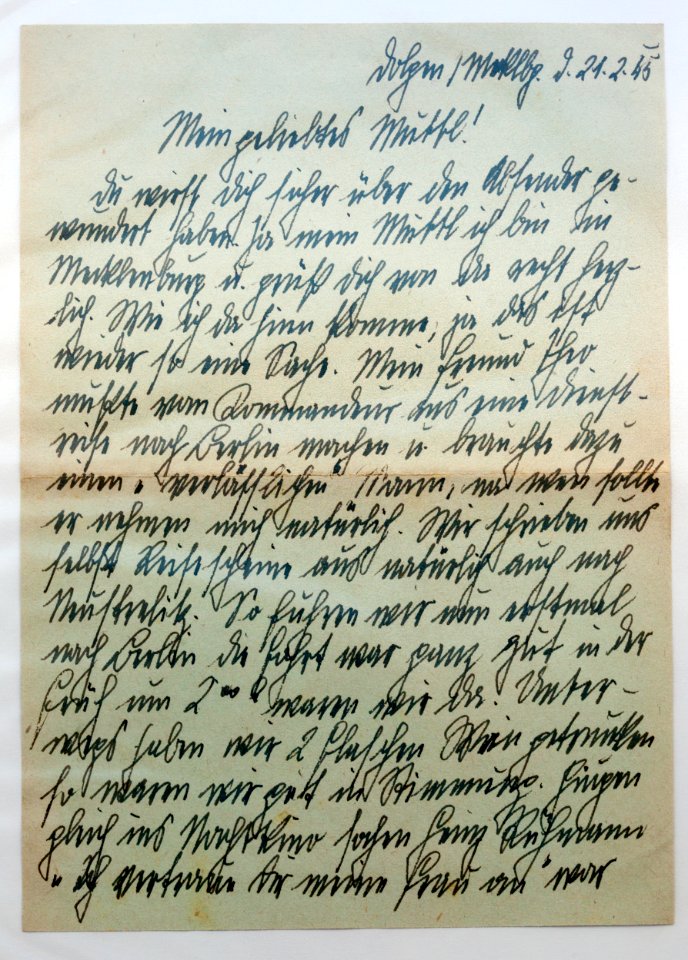 Dolgen / Mecklbg. d. 21.2.45
Mein geliebtes Muttl!
Du wirst Dich sicher über den Absender ge-
wundert haben. Ja mein Muttl ich bin in
Mecklenburg u. grüß Dich von da recht herz-
lich. Wie ich da hinn komme, ja das ist
wieder so eine Sache. Mein Freund Theo
mußte vom Kommandeur aus eine Dienst-
reise nach Berlin machen u. brauchte dazu
einen „verläßlichen" Mann, na wen sollte
er nehmen mich natürlich. Wir schrieben uns
selbst Reisescheine aus natürlich auch nach
Neustrelitz. So fuhren wir nun erstmal
nach Berlin die Fahrt war ganz gut in der
Früh um 2°° waren wir da. Unter-
wegs haben wir 2 Flaschen Wein getrunken
so waren wir gut in Stimmung. Gingen
gleich ins Nachtkino sachen Heinz Rühmann
„Ich vertraue Dir meine Frau an" war